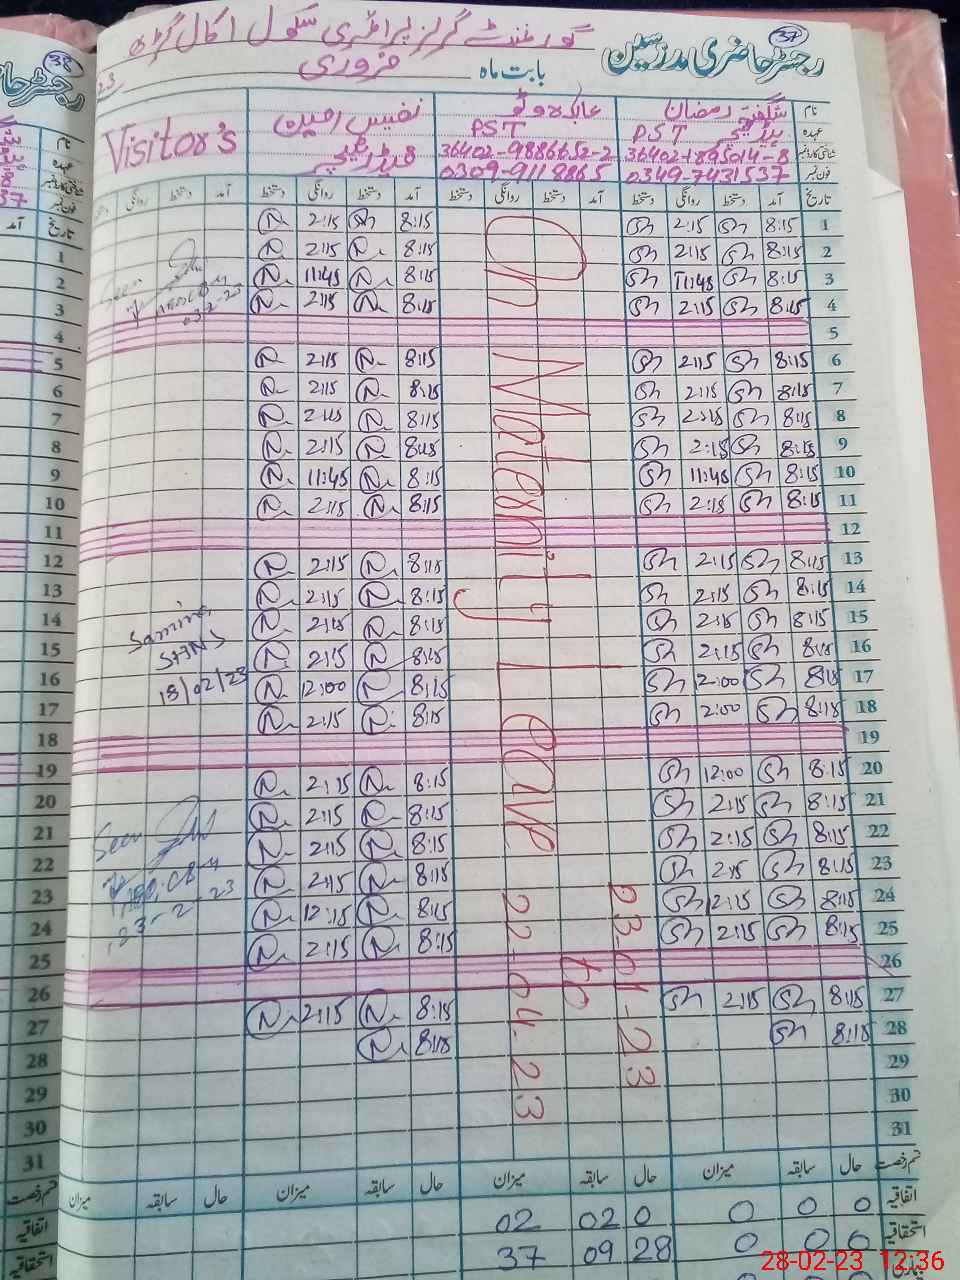 گورنمنٹ گرلز پرائمری سکول اکال گڑھ
رجسٹر حاضری مدرسین
37
بابت ماہ فروری
23
نام شگفتہ رمضان
عہدہ P.S.T
شناختی کارڈ نمبر 36402-1895014-8
فون نمبر 0349-7431537
PST
36402-9886652-2
0309-9118865
نفیس
Visitor's
تاریخ آمد دستخط روانگی دستخط آمد دستخط روانگی دستخط آمد دستخط روانگی دستخط آمد دستخط روانگی
1 8:15 Sh 2:15 Sh 8:15 Sh 2:15 N
2 8:15 Sh 2:15 Sh 8:15 N 2:15 N
3 8:15 Sh 11:45 Sh 8:15 N 11:45 N
4 8:15 Sh 2:15 Sh 8:15 N 2:15 N
5
6 8:15 Sh 2:15 Sh 8:15 N 2:15 N
7 8:15 Sh 2:15 Sh 8:15 N 2:15 N
8 8:15 Sh 2:15 Sh 8:15 N 2:15 N
9 8:15 Sh 2:15 Sh 8:15 N 2:15 N
10 8:15 Sh 11:45 Sh 8:15 N 11:45 N
11 8:15 Sh 2:15 Sh 8:15 N 2:15 N
12
13 8:15 Sh 2:15 Sh 8:15 N 2:15 N
14 8:15 Sh 2:15 Sh 8:15 N 2:15 N
15 8:15 Sh 2:15 Sh 8:15 N 2:15 N
16 8:15 Sh 2:15 Sh 8:15 N 2:15 N
17 8:15 Sh 12:00 Sh 8:15 N 12:00 N
18 8:15 Sh 2:00 Sh 8:15 N 2:15 N
19
20 8:15 Sh 12:00 Sh 8:15 N 2:15 N
21 8:15 Sh 2:15 Sh 8:15 N 2:15 N
22 8:15 Sh 2:15 Sh 8:15 N 2:15 N
23 8:15 Sh 2:15 Sh 8:15 N 2:15 N
24 8:15 Sh 2:15 Sh 8:15 N 12:15 N
25 8:15 Sh 2:15 Sh 8:15 N 2:15 N
26
27 8:15 Sh 2:15 Sh 8:15 N 2:15 N
28 8:15 Sh 8:15 N
29
30
31
On Maternity Leave
23-01-23
to
22-04-23
Seen
03-2-23
Samina
18/02/23
Seen
23-2-23
قسم رخصت حال سابقہ میزان حال سابقہ میزان حال سابقہ میزان حال سابقہ میزان
اتفاقیہ 0 0 0 0 02 02
استحقاقیہ 0 0 0 28 09 37
38
رجسٹر
نام
عہدہ
شناختی کارڈ نمبر
فون نمبر
تاریخ آمد
1
2
3
4
5
6
7
8
9
10
11
12
13
14
15
16
17
18
19
20
21
22
23
24
25
26
27
28
29
30
31
قسم رخصت
اتفاقیہ
استحقاقیہ
28-02-23 12:36